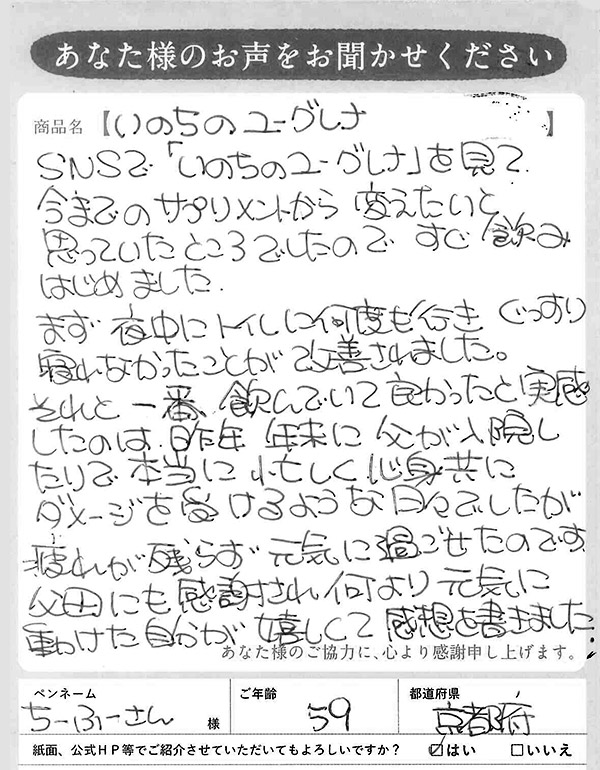 あなた様のお声をお聞かせください
商品名【いのちのユーグレナ】
SNSで「いのちのユーグレナ」を見て
今までのサプリメントから 変えたいと
思っていたところでしたので すぐ飲み
はじめました.
まず 夜中にトイレに何度も行き ぐっすり
寝れなかったことが改善されました。
それと 一番、飲んでいて良かったと実感
したのは、昨年 年末に 父が入院し
たりで 本当に忙しく心身共に
ダメージを受けるような日々でしたが
疲れが残らず 元気に過ごせたのです.
父母にも感謝され何より元気に
動けた自分が 嬉しくて 感想を書きました.
あなた様のご協力に、心より感謝申し上げます。
ペンネーム ご年齢 都道府県
ちーふーさん 様 59 京都府
紙面、公式HP等でご紹介させていただいてもよろしいですか? ☑はい □いいえ